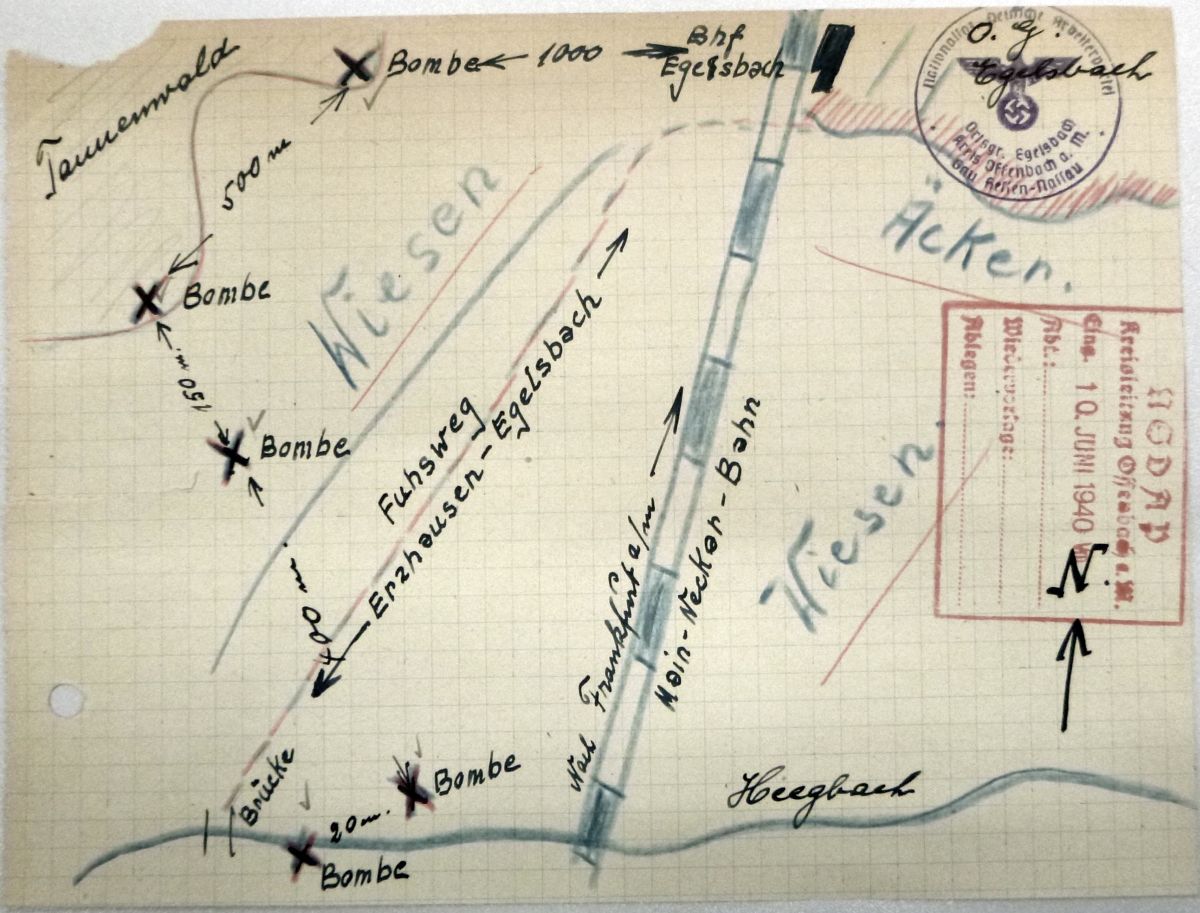 Tannenwald
Bombe
1000
Bhf
Egelsbach
O. G.
Egelsbach
Ortsgr. Egelsbach
Kreis Offenbach a. M.
Gau Hessen-Nassau
500 m
Bombe
150 m.
Bombe
Wiesen
Äcker.
Fuhsweg
Erzhausen-Egelsbach
400 m.
Nach Frankfurt a/m
Main-Neckar-Bahn
Wiesen.
NSDAP
Kreisleitung Offenbach a. M.
Eing. 10. JUNI 1940
Abt.:
Wiedervorlage:
Ablegen:
N.
Brücke
Bombe
20 m.
Bombe
Heegbach